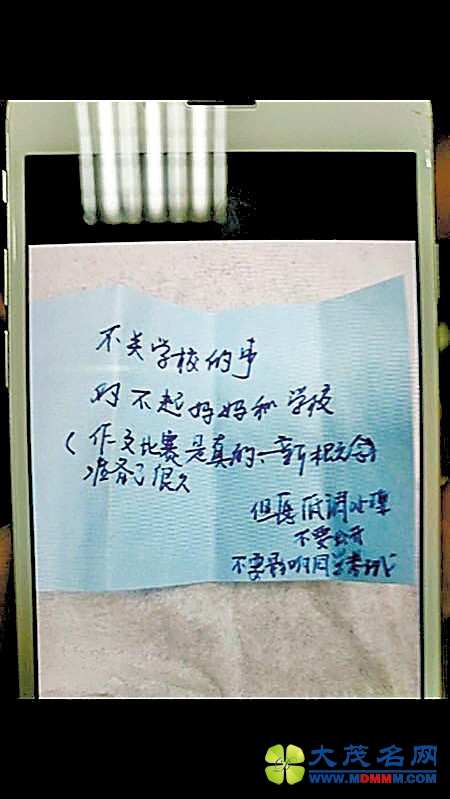 不关学校的事
对不起妈妈和学校
(作文比赛是真的、新概念
准备了很久
但愿低调处理
不要公开
不要影响同学考试
大茂名网
WWW.MDMMM.COM